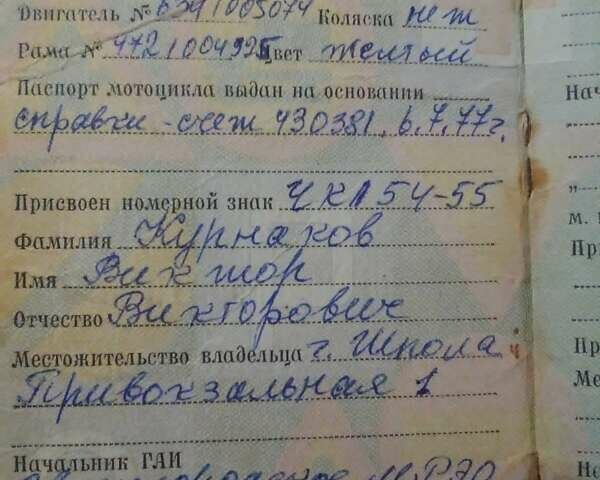 Двигатель № 639/005074 Коляска нет
Рама № 472/004995 Цвет Желтый
Паспорт мотоцикла выдан на основании
справки-счет 430381, 6.7.77г.
Присвоен номерной знак ЧКЛ 54-55
Фамилия Курнаков
Имя Виктор
Отчество Викторович
Местожительство владельца г. Шпола
Привокзальная 1
Начальник ГАИ
МРЭО